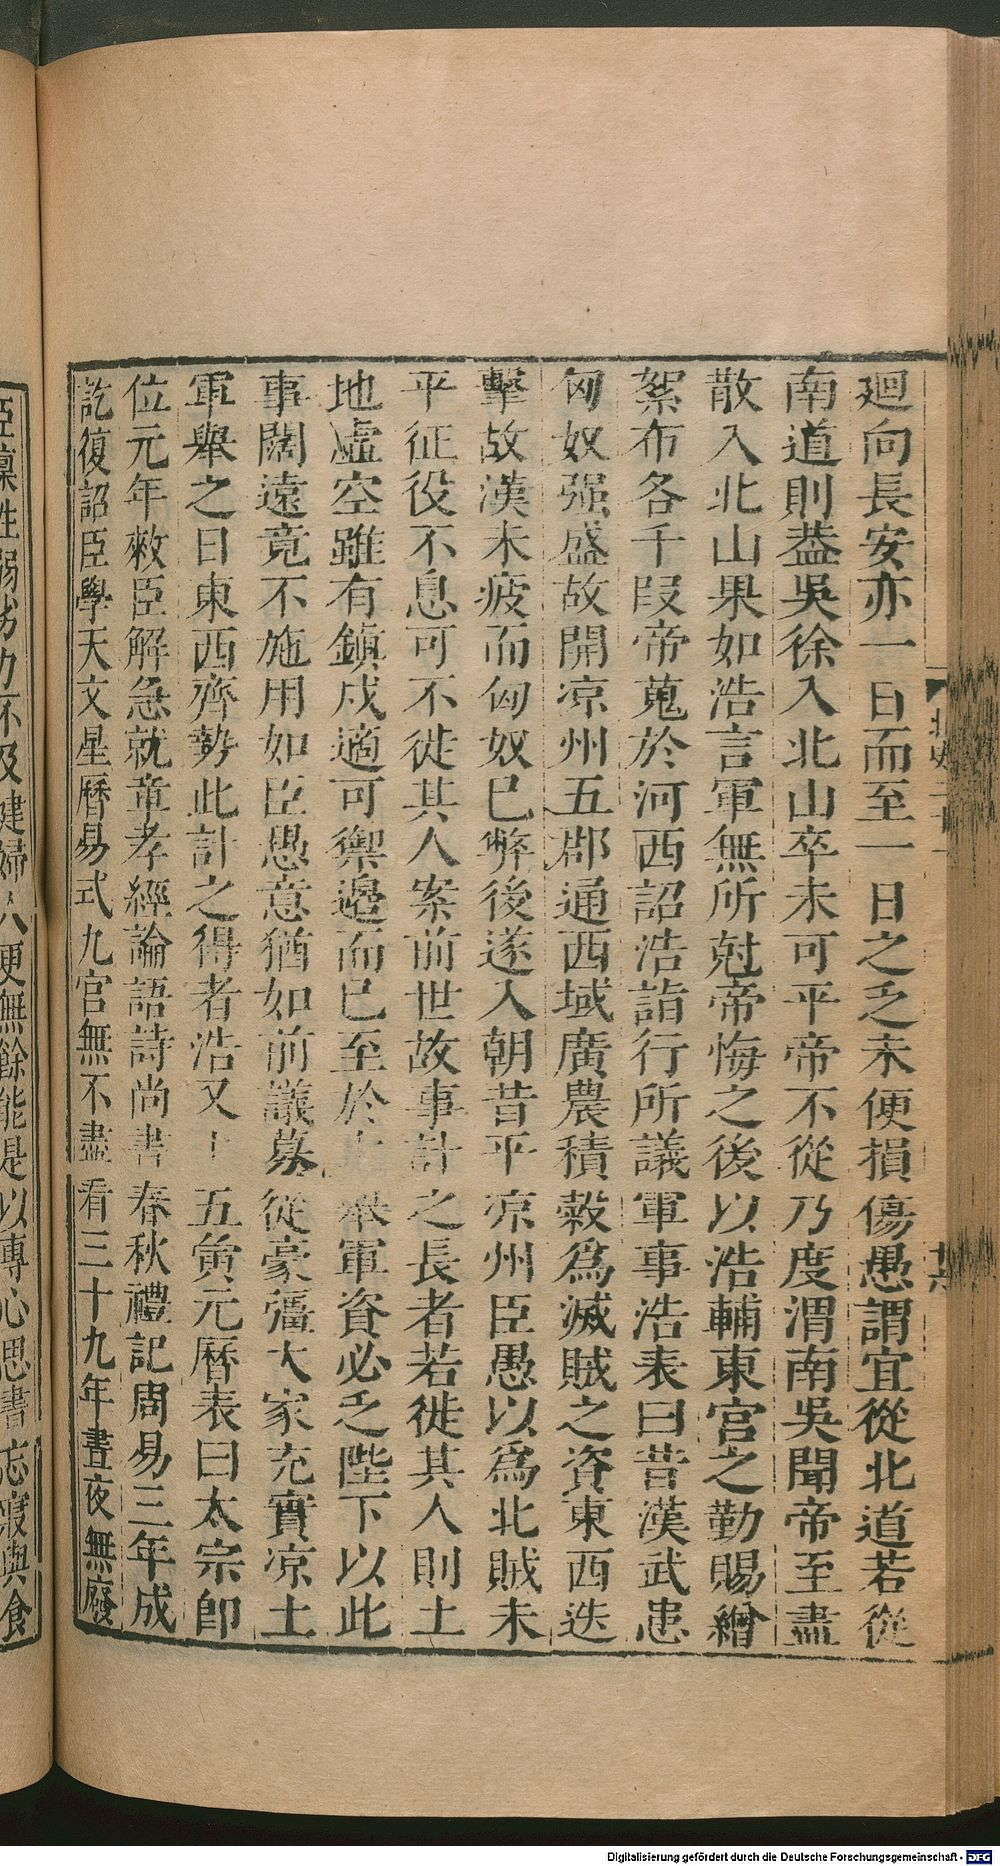 廻向長安亦一日而至一日之乏未便損傷愚謂宜從北道若從
南道則葢吳徐入北山卒未可平帝不從乃度渭南吳聞帝至盡
散入北山果如浩言軍無所尅帝悔之後以浩輔東宮之勤賜繒
絮布各千叚帝蒐於河西詔浩詣行所議軍事浩表曰昔漢武患
匈奴强盛故開凉州五郡通西域廣農積榖爲滅賊之資東西迭
擊故漢未疲而匈奴已弊後遂入朝昔平凉州臣愚以爲北賊未
平征役不息可不徙其人案前世故事計之長者若徙其人則土
地虛空雖有鎮戍適可禦邊而已至於舉軍資必乏陛下以此
事闊遠竟不施用如臣愚意猶如前議募從豪彊大家充實凉土
軍舉之日東西齊勢此計之得者浩又上五寅元曆表曰太宗卽
位元年敕臣解急就章孝經論語詩尚書春秋禮記周易三年成
訖復詔臣學天文星曆易式九官無不盡看三十九年晝夜無廢
臣稟性弱劣力不及健婦人更無餘能是以專心思書忘寢與食
北史二十一
Digitalisierung gefördert durch die Deutsche Forschungsgemeinschaft - DFG